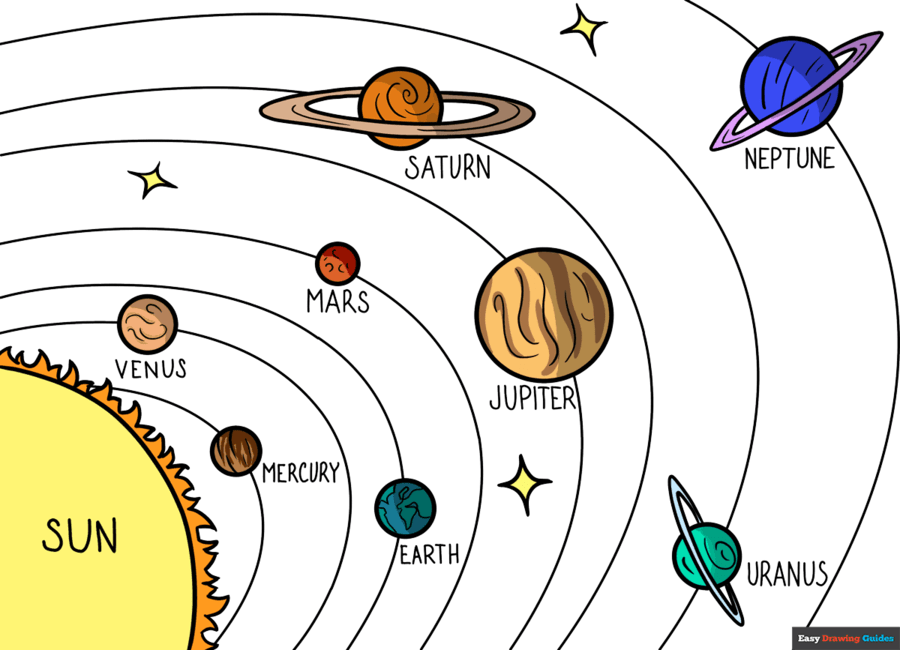 NEPTUNE
SATURN
MARS
VENUS
JUPITER
MERCURY
SUN
EARTH
URANUS
Easy Drawing Guides